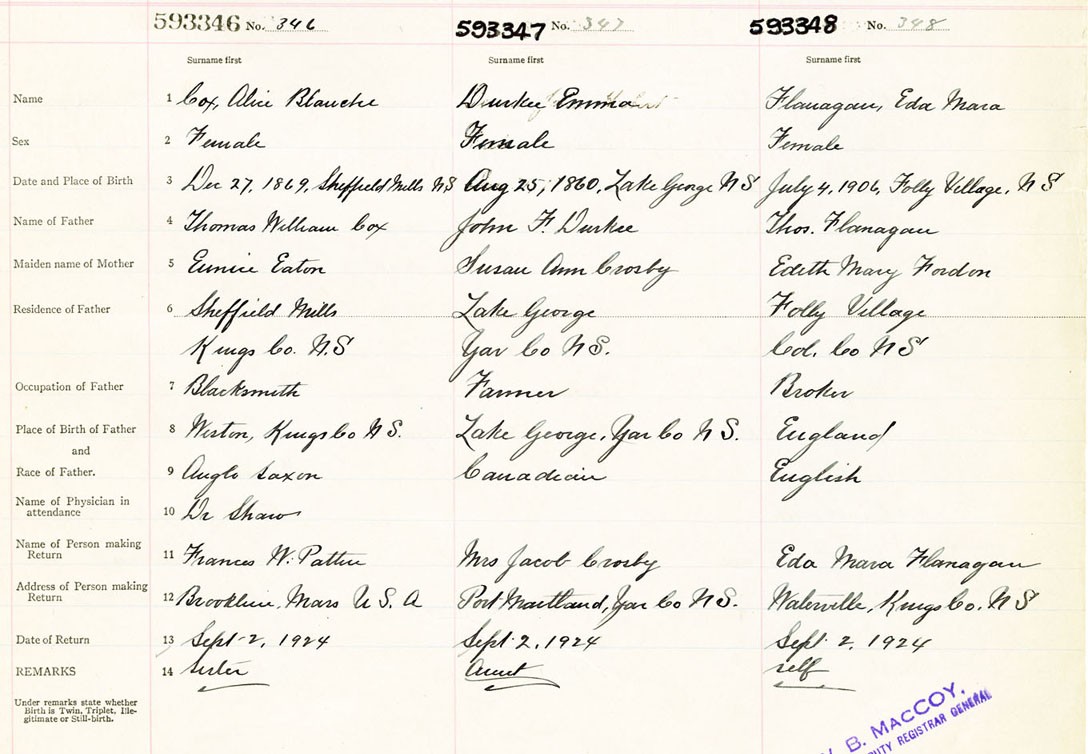 593346 No. 346 593347 No. 347 593348 No. 348
Surname first Surname first Surname first
Name 1 Cox, Alice Blanche Durkee Emma Flanagan, Eda Mara
Sex 2 Female Female Female
Date and Place of Birth 3 Dec 27, 1869, Sheffield Mills NS Aug 25, 1860, Lake George NS July 4, 1906, Folly Village, NS
Name of Father 4 Thomas William Cox John F. Durkee Thos. Flanagan
Maiden name of Mother 5 Eunice Eaton Susan Ann Crosby Edith Mary Fordon
Residence of Father 6 Sheffield Mills Lake George Folly Village
Kings Co. N.S Yar Co N S. Col. Co N S
Occupation of Father 7 Blacksmith Farmer Broker
Place of Birth of Father 8 Weston, Kings Co N S. Lake George, Yar Co N S. England
and
Race of Father. 9 Anglo Saxon Canadian English
Name of Physician in
attendance 10 Dr Shaw
Name of Person making
Return 11 Frances W. Patten Mrs Jacob Crosby Eda Mara Flanagan
Address of Person making
Return 12 Brookline, Mass U S. A Port Maitland, Yar Co N S. Waterville, Kings Co. N S
Date of Return 13 Sept 2, 1924 Sept 2, 1924 Sept 2, 1924
REMARKS 14 sister Aunt self
Under remarks state whether
Birth is Twin, Triplet, Ille-
gitimate or Still-birth.
B. MACCOY,
DEPUTY REGISTRAR GENERAL